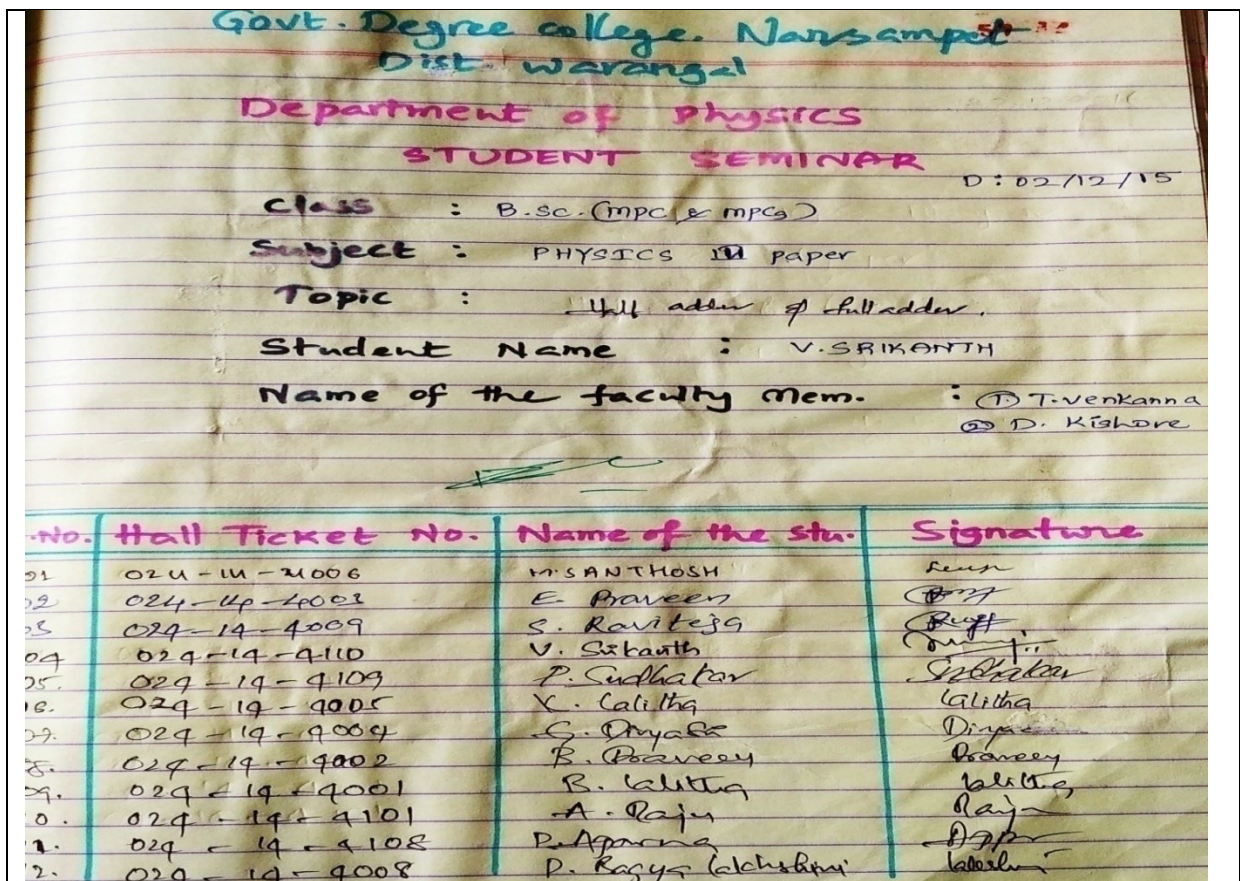 Govt. Degree college. Narsampet
Dist warangal
Department of Physics
STUDENT SEMINAR
D: 02/12/15
Class : B.sc. (mpc & mpcs)
Subject : PHYSICS paper
Topic : Half adder & full adder.
Student Name : V. SRIKANTH
Name of the faculty Mem. : ① T. Venkanna
② D. Kishore
.No. Hall Ticket No. Name of the stu. Signature
01 024-14-4006 M. SANTHOSH
02 024-14-4003 E. Praveen
03 024-14-4009 S. Raviteja
04 024-14-4110 V. Srikanth
05. 024-14-4109 P. Sudhakar Sudhakar
6. 024-14-4005 K. Lalitha Lalitha
07. 024-14-4004 G. Divya Divya
8. 024-14-4002 B. Praveen Praveen
09. 024-14-4001 B. Lalitha Lalitha
0. 024-14-4101 A. Raju Raju
1. 024-14-4108 P. Aparna
2. 024-14-4008 P. Lakshmi